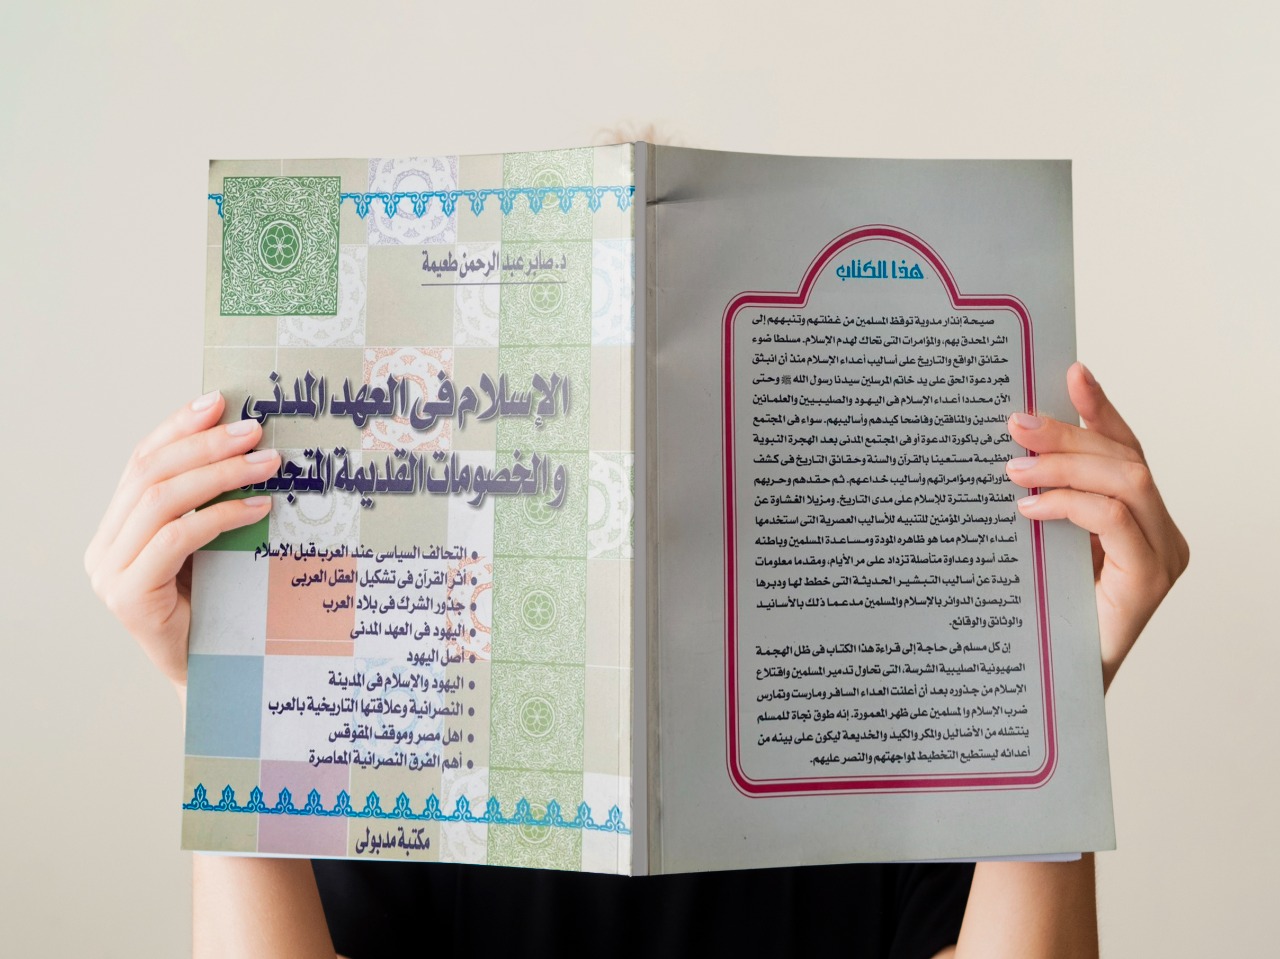 د. صابر عبد الرحمن طعيمة
الإسلام فى العهد المدنى
والخصومات القديمة
• التحالف السياسى عند العرب قبل الإسلام
• أثر القرآن فى تشكيل العقل العربى
• جذور الشرك فى بلاد العرب
• اليهود فى العهد المدنى
• أصل اليهود
• اليهود والإسلام فى المدينة
• النصرانية وعلاقتها التاريخية بالعرب
• اهل مصر وموقف المقوقس
• أهم الفرق النصرانية المعاصرة
مكتبة مدبولى
هذا الكتاب
صيحة إنذار مدوية توقظ المسلمين من غفلتهم وتنبههم إلى
الشر المحدق بهم، والمؤامرات التى تحاك لهدم الإسلام. مسلطا ضوء
حقائق الواقع والتاريخ على أساليب أعداء الإسلام منذ أن انبثق
فجر دعوة الحق على يد خاتم المرسلين سيدنا رسول الله ﷺ وحتى
الآن محددا أعداء الإسلام فى اليهود والصليبيين والعلمانين
والملحدين والمنافقين وفاضحا كيدهم وأساليبهم. سواء فى المجتمع
المكى فى باكورة الدعوة أو فى المجتمع المدنى بعد الهجرة النبوية
العظيمة مستعينا بالقرآن والسنة وحقائق التاريخ فى كشف
ومؤامراتهم وأساليب خداعهم. ثم حقدهم وحربهم
المعلنة والمستترة للإسلام على مدى التاريخ. ومزيلا الغشاوة عن
أبصار وبصائر المؤمنين للتنبيه للأساليب العصرية التى استخدمها
أعداء الإسلام مما هو ظاهره المودة ومساعدة المسلمين وباطنه
حقد أسود وعداوة متأصلة تزداد على مر الأيام. ومقدما معلومات
فريدة عن أساليب التبشير الحديثة التى خطط لها ودبرها
المتربصون الدوائر بالإسلام والمسلمين مدعما ذلك بالأسانيد
والوثائق والوقائع.
إن كل مسلم فى حاجة إلى قراءة هذا الكتاب فى ظل الهجمة
الصهيونية الصليبية الشرسة، التى تحاول تدمير المسلمين واقتلاع
الإسلام من جذوره بعد أن أعلنت العداء السافر ومارست وتمارس
ضرب الإسلام والمسلمين على ظهر المعمورة. إنه طوق نجاة للمسلم
ينتشله من الأضاليل والمكر والكيد والخديعة ليكون على بينه من
أعدائه ليستطيع التخطيط لمواجهتهم والنصر عليهم.